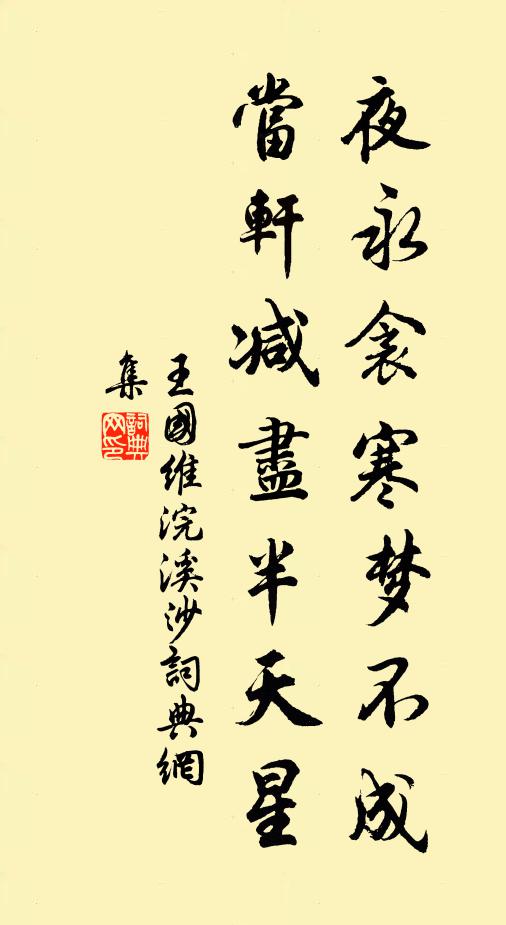 夜永衾寒梦不成
當軒减盡半天星
王國維浣溪沙詞典網
集
詞典
网印